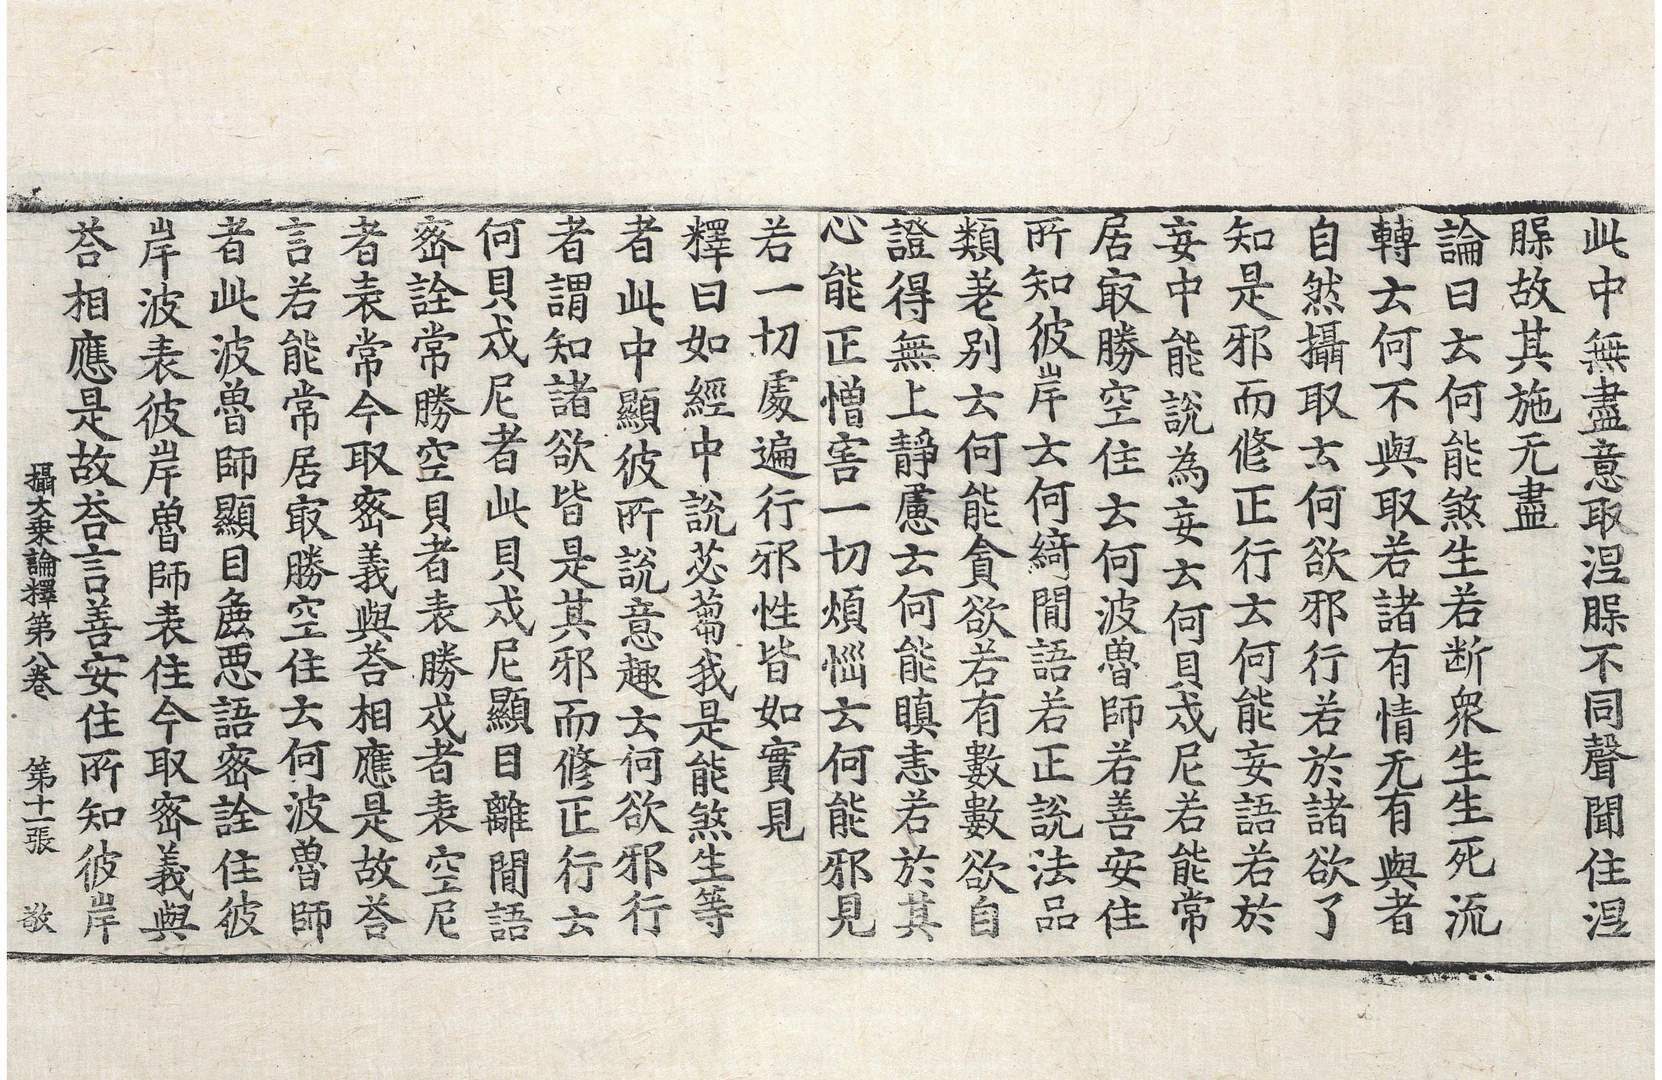 此中無盡意取涅槃不同聲聞住涅
槃故其施无盡
論曰云何能煞生若断衆生生死流
轉云何不與取若諸有情无有與者
自然攝取云何欲邪行若於諸欲了
知是邪而修正行云何能妄語若於
妄中能說為妄云何貝戍尼若能常
居㝡勝空住云何波魯師若善安住
所知彼岸云何綺間語若正說法品
類差別云何能貪欲若有數數欲自
證得無上靜慮云何能瞋恚若於其
心能正憎害一切煩惱云何能邪見
若一切處遍行邪性皆如實見
釋曰如經中說苾蒭我是能煞生等
者此中顯彼所說意趣云何欲邪行
者謂知諸欲皆是其邪而修正行云
何貝戍尼者此貝戍尼顯目離間語
密詮常勝空貝者表勝戍者表空尼
者表常今取密義與荅相應是故荅
言若能常居㝡勝空住云何波魯師
者此波魯師顯目麁惡語密詮住彼
岸波表彼岸魯師表住今取密義與
荅相應是故荅言善安住所知彼岸
攝大乗論釋第八卷 第十一張 敬